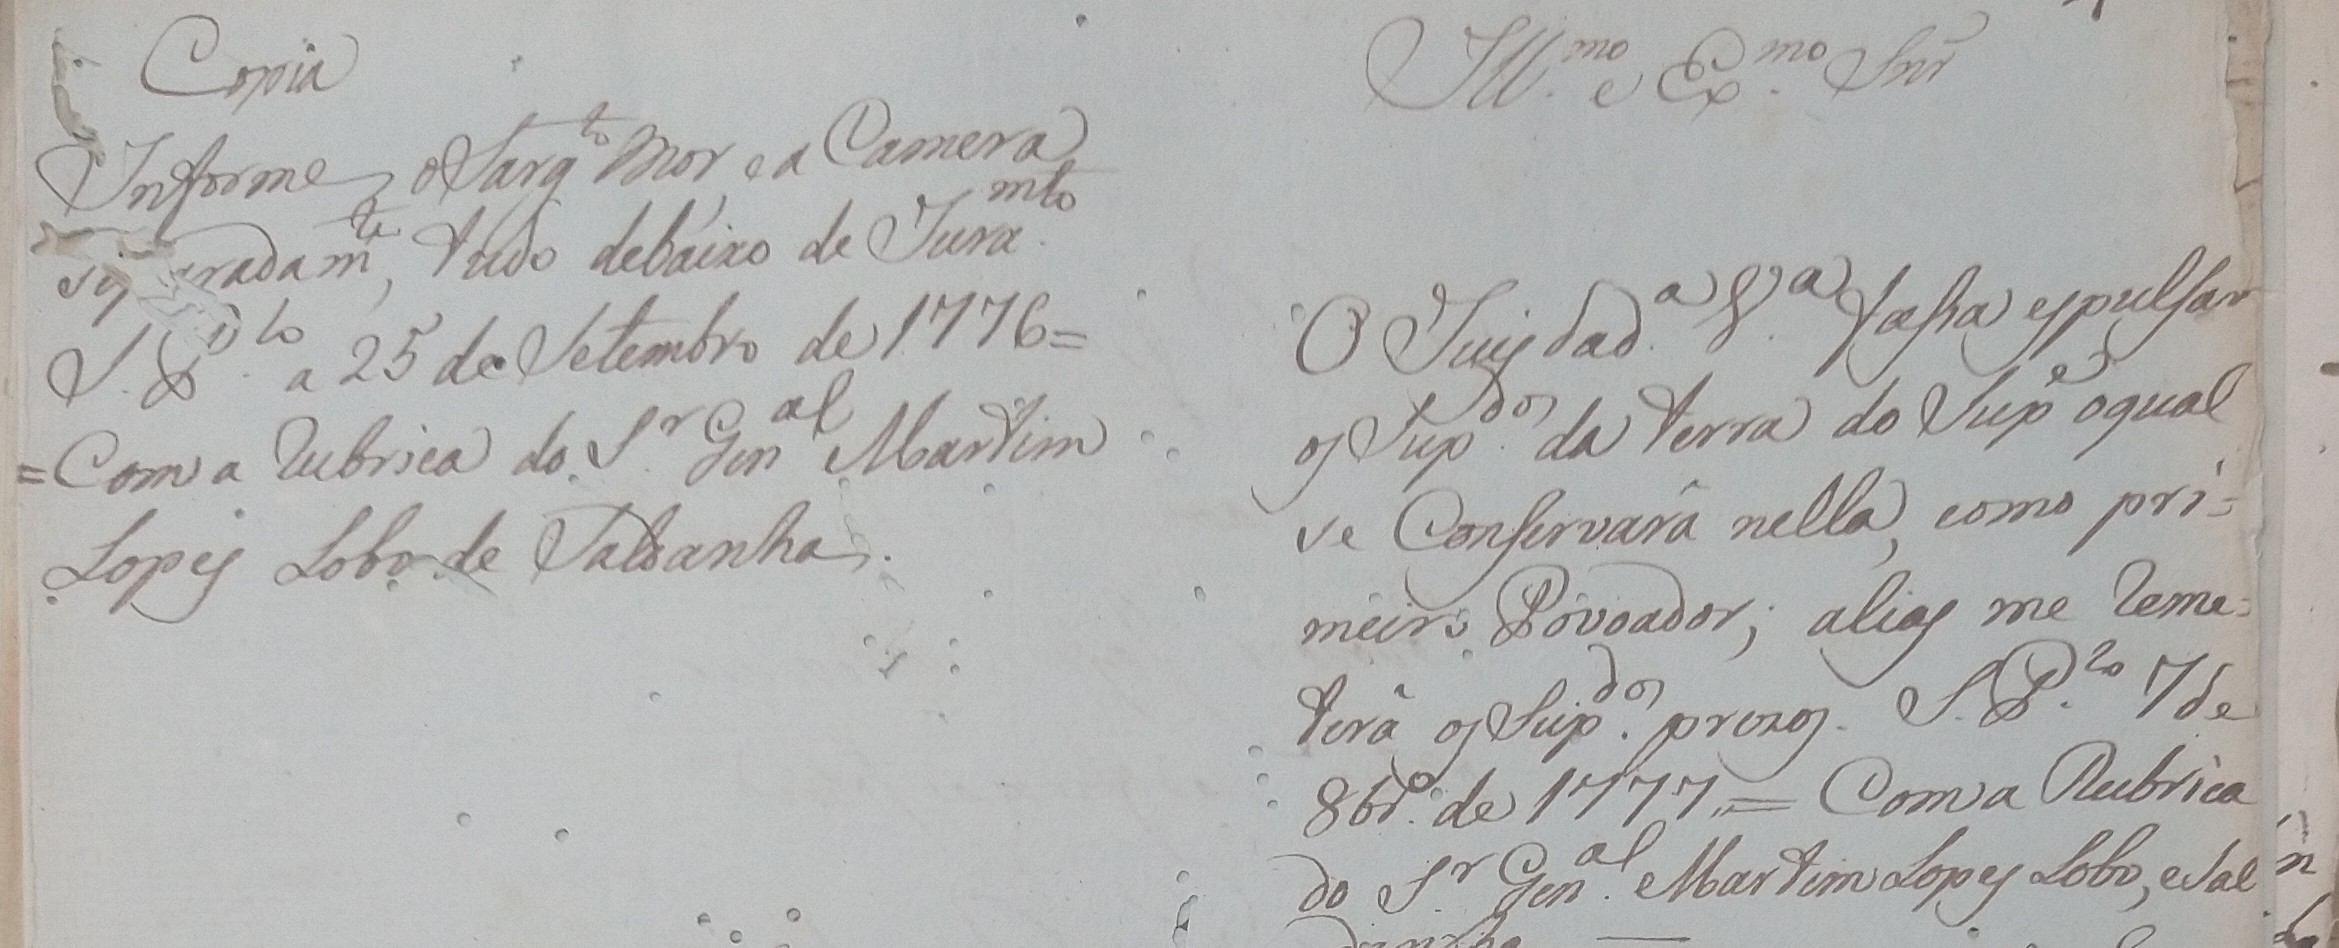 Copia
Informe, o Sarg.to Mor, e a Camera
separadam.te, tudo debaixo de Juram.to
S. P.lo a 25 de Setembro de 1776=
=Com a rubrica do S.r Gen.al Martim
Lopes Lobo de Saldanha.
Ill.mo e Ex.mo Snr
O Juis dad.a V.a fassa espulsar
os Sup.dos da terra do Sup.e o qual
se Conservarâ nella, como pri=
meiro Povoador; alias me reme=
terâ os Sup.dos prezos. S. P.lo 7 de
8br.o de 1777,= Com a Rubrica
do S.r Gen.al Martim Lopes Lobo, e Sal
danha